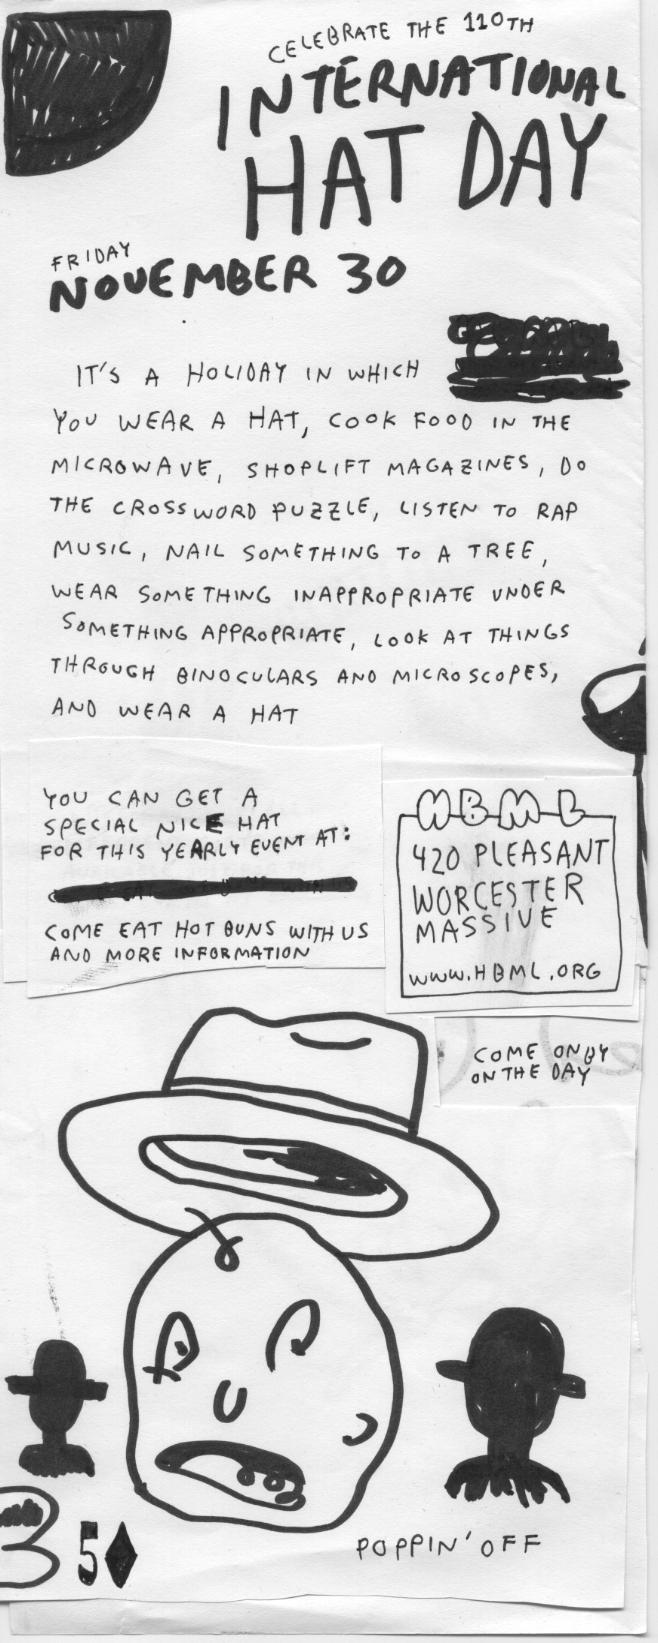 CELEBRATE THE 110TH
INTERNATIONAL
HAT DAY
FRIDAY
NOVEMBER 30
IT'S A HOLIDAY IN WHICH
YOU WEAR A HAT, COOK FOOD IN THE
MICROWAVE, SHOPLIFT MAGAZINES, DO
THE CROSSWORD PUZZLE, LISTEN TO RAP
MUSIC, NAIL SOMETHING TO A TREE,
WEAR SOMETHING INAPPROPRIATE UNDER
SOMETHING APPROPRIATE, LOOK AT THINGS
THROUGH BINOCULARS AND MICROSCOPES,
AND WEAR A HAT
YOU CAN GET A
SPECIAL NICE HAT
FOR THIS YEARLY EVENT AT:
COME EAT HOT BUNS WITH US
AND MORE INFORMATION
HBML
420 PLEASANT
WORCESTER
MASSIVE
WWW.HBML.ORG
COME ON BY
ON THE DAY
5♦
POPPIN' OFF